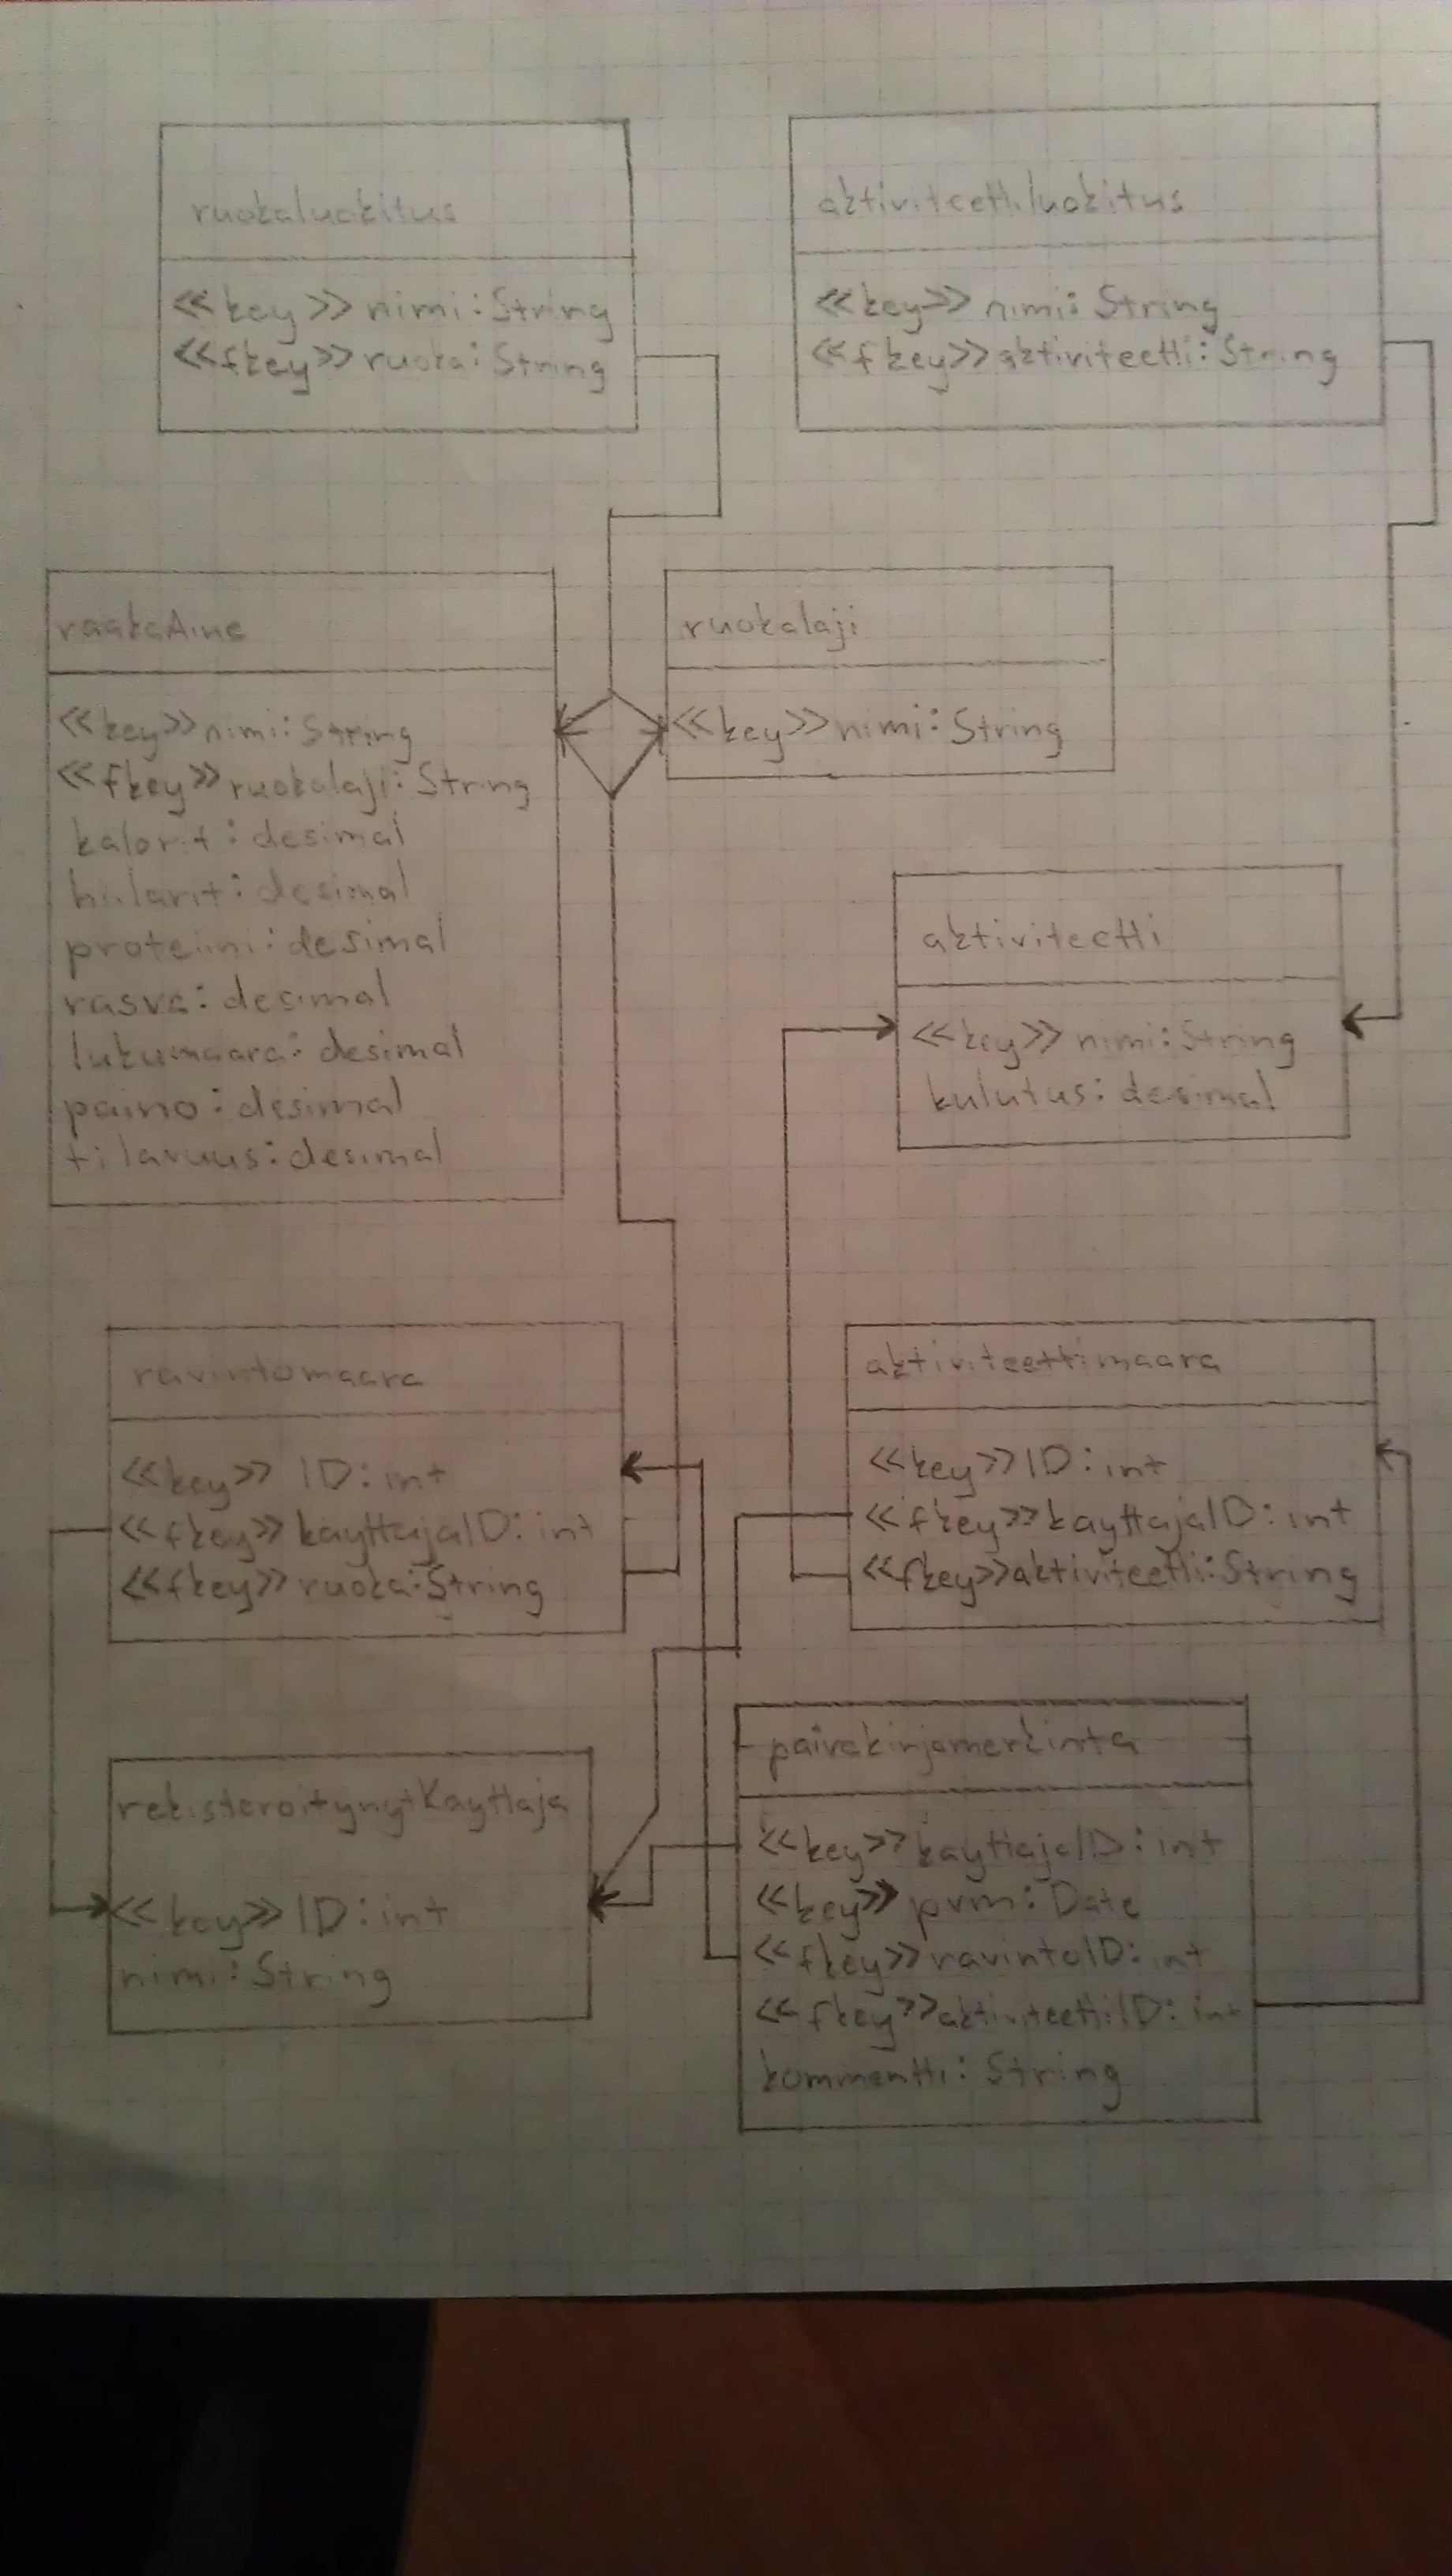 ruokaluokitus
<<key>> nimi: String
<<fkey>> ruoka: String
aktiviteettiluokitus
<<key>> nimi: String
<<fkey>> aktiviteetti: String
raakaAine
<<key>> nimi: String
<<fkey>> ruokalaji: String
kalorit: desimal
hiilarit: desimal
proteiini: desimal
rasva: desimal
lukumaara: desimal
paino: desimal
tilavuus: desimal
ruokalaji
<<key>> nimi: String
aktiviteetti
<<key>> nimi: String
kulutus: desimal
ravintomaara
<<key>> ID: int
<<fkey>> kayttajaID: int
<<fkey>> ruoka: String
aktiviteettimaara
<<key>> ID: int
<<fkey>> kayttajaID: int
<<fkey>> aktiviteetti: String
rekisteroitynytKayttaja
<<key>> ID: int
nimi: String
paivakirjamerkinta
<<key>> kayttajaID: int
<<key>> pvm: Date
<<fkey>> ravintoID: int
<<fkey>> aktiviteettiID: int
kommentti: String